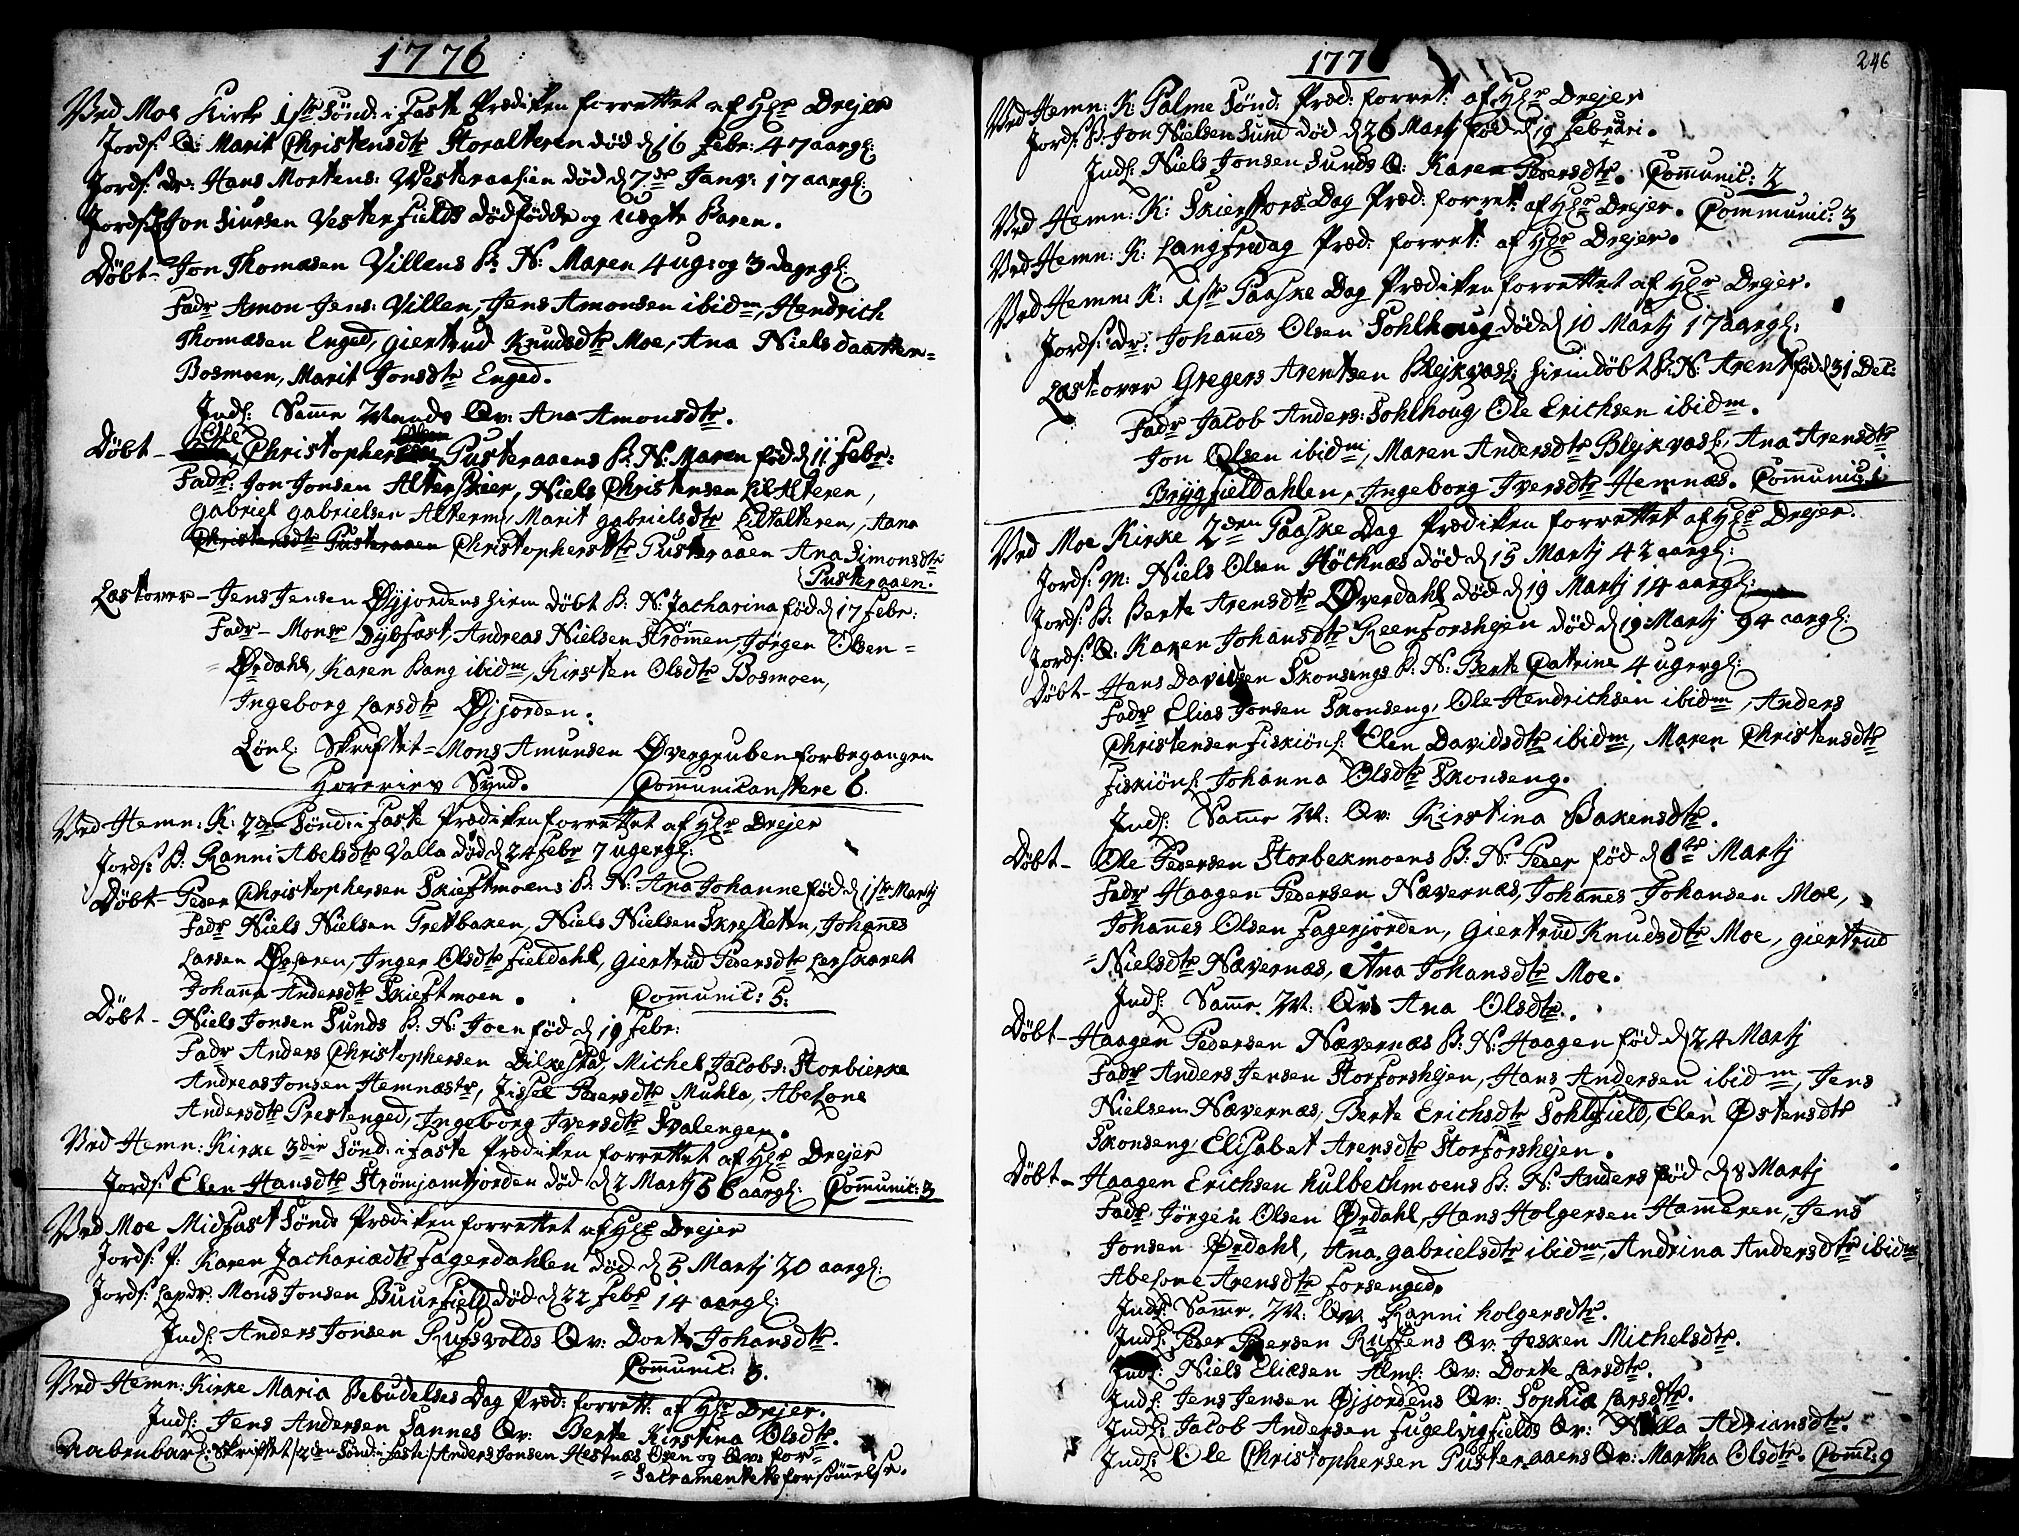 1776
Ved Moe Kirke 1ste Sønd: i Faste Prædiken forrettet af Hr Drejer
Jords: Q: Marit Christensdtr Storalteren død d 16 Febr: 47 aargl:
Jords: Dr: Hans Mortens: Westeraalien død d 7de Janv: 17 aargl:
Jords: Jon Siursen Vesterfields dødfødde og uegte Baren.
Døbt - Jon Thomæsen Villæns B: N: Maren 4 ug: og 3 dagrgl:
Fadr Amon Jens: Villen, Jens Amonsen ibidm, Hendrich
Thomæsen Enged, Giertrud Knudsdtr Moe, Ana Nielsdaatter
Bosmoen, Marit Jonsdtr Enged.
Indl: Samme Mands Qv: Ana Amonsdtr.
Døbt - Ole Christophersen Pusteraaens B: N: Maren fød d 11 Febr:
Fadr: Jon Jonsen Alterskeer, Niels Christensen Lilalteren,
Gabriel Gabrielsen Alterm, Marit Gabrielsdtr Liltalteren, Aana
Christensdtr Pusteraaen Christophersdtr Pusteraaen Ana Simonsdtr
Pusteraaen.
Læst over - Jens Jensen Øyjordens hiem døbt B: N: Zacharina fød d 17 Febr:
Fadr - Monsr Dybfast, Andreas Nielsen Strømmen, Jørgen Olsen
Ørdahl, Karen Bang ibidm, Kirsten Olsdtr Bosmoen,
Ingeborg Larsdtr Øjjorden.
Lønl: Skriftet = Mons Amunsen Øvergruben forbegangen
Horeries Synd. Communicantere 6.
Ved Hemn: K: 2den Sønd: i Faste Prædiken forrettet af Hr Drejer
Jords: B: Ranni Abelsdtr Valla død d 24 Febr 7 ugergl:
Døbt - Peder Christophersen Skieftmoens B: N: Ana Johanne fød d 1ste Martj
Fadr Niels Nielsen Tretbaken, Niels Nielsen Skresleten, Johanes
Larsen Ørseren, Inger Olsdtr Fieldahl, Giertrud Pedersdtr Larskaret
Johanna Andersdtr Skieftmoen. Communic: 5.
Døbt - Niels Jonsen Sunds B: N: Joen fød d 19 Febr:
Fadr Anders Christophersen Dilkestad, Michel Jacobs: Storbierke
Andreas Jonsen Hemnæstr, Zissel Pedersdtr Muhla, Abelone
Andersdtr Prestenged, Ingeborg Iversdtr Svalengen.
Ved Hemn: Kirke 3die Sønd: i Faste Prædiken forrettet af Hr Drejer
Jords: Elen Hansdtr Strømjamfjorden død d 2 Martj 56 aargl: Communic: 3
Ved Moe Midfast Sønd: Prædiken forrettet af Hr Drejer
Jords: P: Karen Zachariædtr Fagerdahlen død d 5 Martj 20 aargl:
Jords: Lapdr: Mons Jonsen Buurfield død d 22 Febr 14 aargl:
Indl: Anders Jonsen Rufsvolds Qv: Dorte Johansdtr.
Communic: 3.
Ved Hemn: Kirke Maria Bebudelses Dag Præd: forrett: af Hr Drejer.
Indl: Jens Andersen Sannes Qv: Berte Kirstina Olsdtr.
Aabenbarl: Skriftet /2den Sønd: i Faste/ Anders Jonsen Hestnæs Osen og Qv: for
Sacramentets forsømmelse.
1776
246
Ved Hemn: K: Palme Sønd: Præd: forret: af Hr Drejer
Jords: B: Jon Nielsen Sund død d 26 Martj fød d 19 Februari.
Indl: Niels Jonsen Sunds Q: Karen Pedersdtr. Communic: 2
Ved Hemn: K: Skiertors Dag Præd: forret: af Hr Drejer. Communic: 3
Ved Hemn: K: Langfredag Præd: forret: af Hr Drejer.
Ved Hemn: K: 1ste Paaske Dag Prædiken forrettet af Hr Drejer.
Jords: Dr: Johanes Olsen Sohlhoug død d 10 Martj 17 aargl:
Læst over Gregers Arentsen Blejkvasl: hiemdøbt B: N: Arent fød d 31 Dec:
Fadr Jacob Anders: Sohlhoug, Ole Erichsen ibidm.
Jon Olsen ibidm, Maren Andersdtr Blejkvasl:, Ana Arensdtr
Brygfieldahlen, Ingeborg Iversdtr Hemnæs. Communic: 1
Ved Moe Kirke 2den Paaske Dag Prædiken forrettet af Hr Drejer.
Jords: M: Niels Olsen Høthnæs død d 15 Martj 42 aargl:
Jords: B: Berte Arensdtr Øverdahl død d 19 Martj 14 aargl:
Jords: Q: Karen Johansdtr Reenforshejen død d 19 Martj 94 aargl:
Døbt - Hans Davidsen Skonsengs B: N: Berte Catrine 4 ugergl:
Fadr Elias Jonsen Skonseng, Ole Hendrichsen ibidm, Anders
Christensen Fiskiønl: Elen Davidsdtr ibidm, Maren Christensdtr
Fiskiønl: Johanna Olsdtr Skonseng.
Indl: Samme M: Qv: Kirstina Bakensdtr.
Døbt - Ole Pedersen Storbekmoens B: N: Peder fød d 8de Martj
Fadr Haagen Pedersen Nævernæs, Johanes Johansen Moe,
Johanes Olsen Fagerjorden, Giertrud Knudsdtr Moe, Giertrud
Nielsdtr Nævernæs, Ana Johansdtr Moe.
Indl: Samme M: Qv: Ana Olsdtr.
Døbt - Haagen Pedersen Nævernæs B: N: Haagen fød d 24 Martj
Fadr Anders Jensen Storforshejen, Hans Andersen ibidm, Jens
Nielsen Nævernæs, Berte Erichsdtr Sohlfield, Elen Østensdtr
Skonseng, Elisabet Arensdtr Storforshejen.
Døbt - Haagen Erichsen Hulbechmoens B: N: Anders fød d 8 Martj
Fadr Jørgen Olsen Ørdahl, Hans Holgersen Hammeren, Jens
Jonsen Ørdahl, Ana Gabrielsdtr ibidm, Andrina Andersdtr ibidm
Abelone Arensdtr Forsenged.
Indl: Samme M: Qv: Ranni Holgersdtr.
Indl: Peder Persen Ruffens Qv: Jesken Michelsdtr.
Indl: Niels Eliæsen Alml: Qv: Dorte Larsdtr.
Indl: Jens Jensen Øjjordens Qv: Sophia Larsdtr.
Indl: Jacob Andersen Fugelvigfields Qv: Nilla Adriansdtr.
Indl: Ole Christophersen Pusteraaens Qv: Martha Olsdtr. Comm: 9